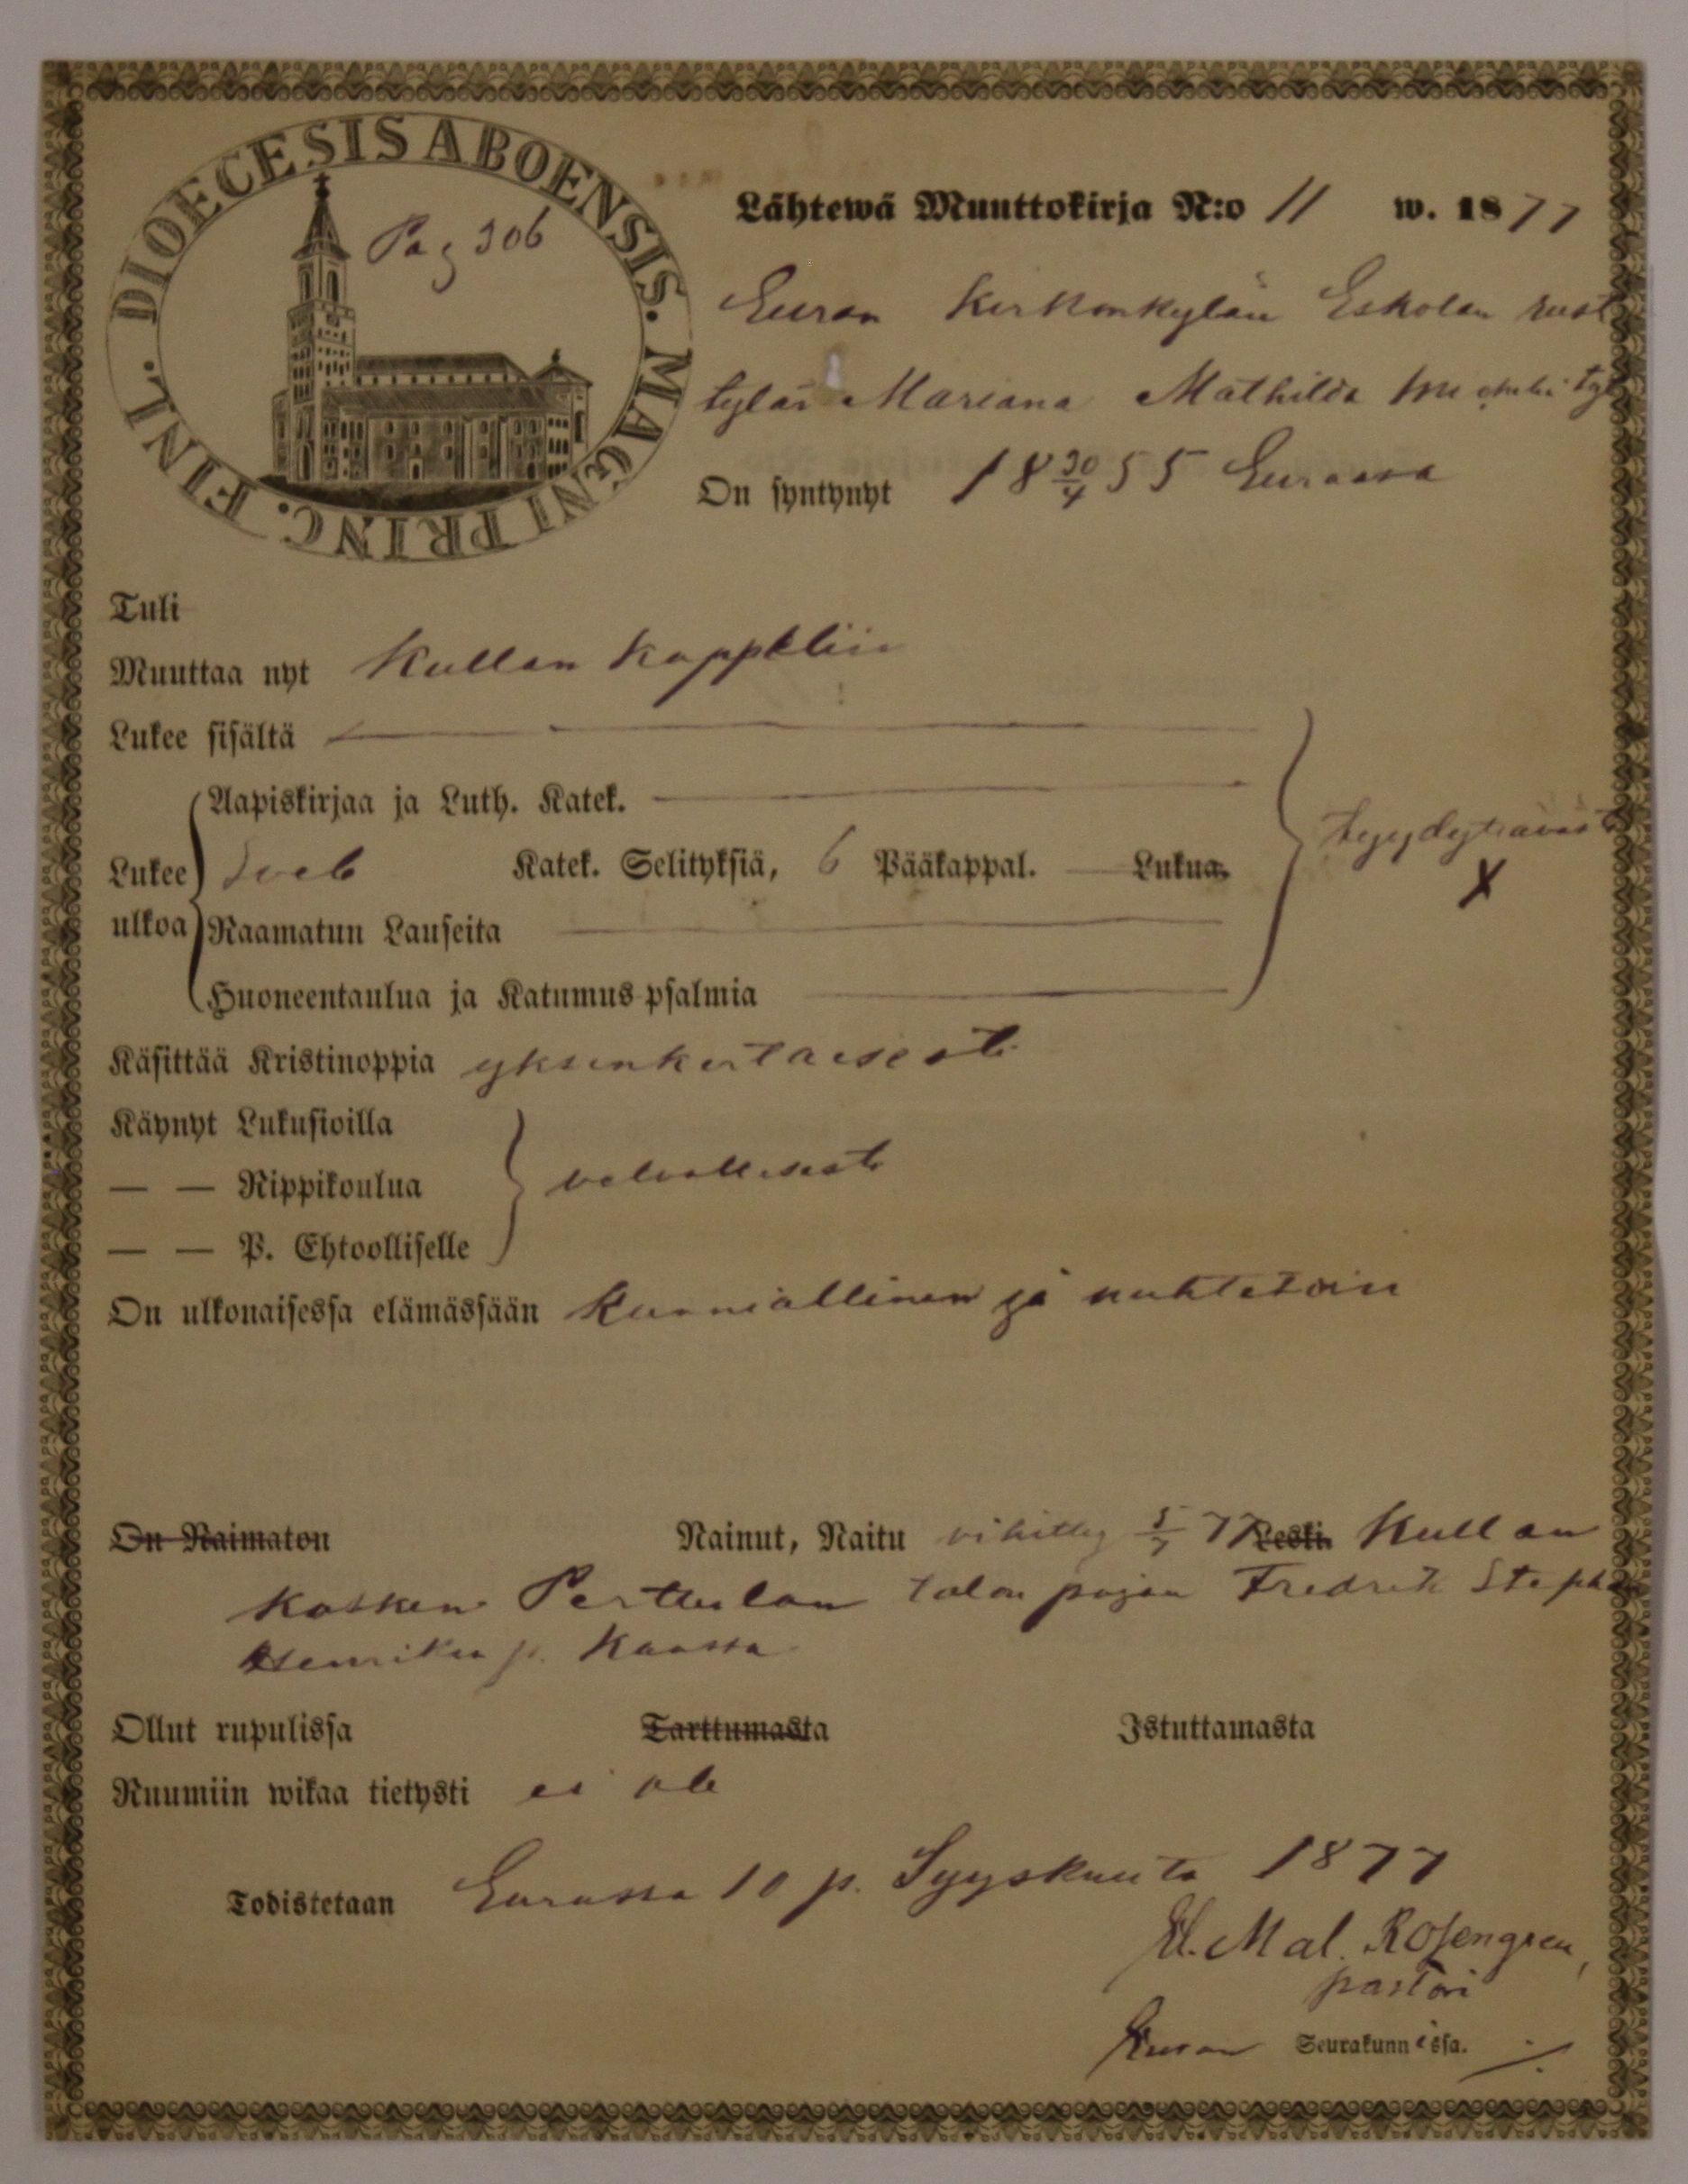 DIOECESIS ABOENSIS. MAGNI PRINC. FINL.
Pag 306
Lähtewä Muuttokirja N:o 11 w. 1877
Euran Kirkonkylän Eskolan rust
tytär Mariana Mathilda
On syntynyt 18 30/4 55 Eurassa
Tuli
Muuttaa nyt Kullan Kappeliin
Lukee sisältä
Aapiskirjaa ja Luth. Katek.
Lukee ulkoa Sveb Katek. Selityksiä, 6 Pääkappal. Lukua.
tyydyttäväst
x
Raamatun Lauseita
Huoneentaulua ja Katumus-psalmia
Käsittää Kristinoppia yksinkertaisesti
Käynyt Lukusioilla
— — Rippikoulua
— — P. Ehtoolliselle
On ulkonaisessa elämässään kunniallinen ja nuhtetoin
On Naimaton Nainut, Naitu vihitty 5/7 77 Leski. Kullan
Kosken Perttulan talon pojan Fredrik Stephan
Henrikin p. Kanssa
Ollut rupulissa Tarttumasta Istuttamasta
Ruumiin wikaa tietysti ei ole
Todistetaan Eurassa 10 p. Syyskuuta 1877
Mal. Rosengren,
pastori
Euran Seurakunnissa.